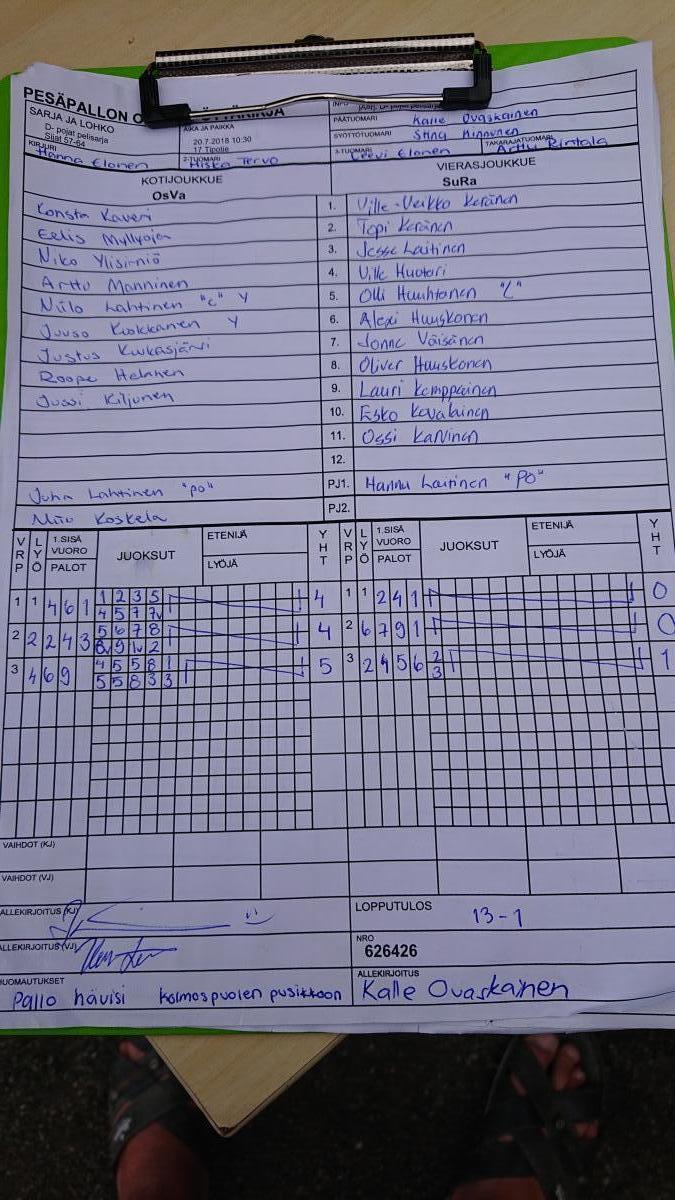 PESÄPALLON
SARJA JA LOHKO
D- pojat pelisarja
Sijat 57-64
KIRJURI
Hanna Elonen
AIKA JA PAIKKA
20.7.2018 10:30
17 Tipolie
2-TUOMARI
Miska Tervo
PÄÄTUOMARI Kalle Ovaskainen
SYÖTTÖTUOMARI Stina Kinnunen
3-TUOMARI Leevi Elonen
TAKARAJATUOMARI Arttu Rintala
KOTIJOUKKUE
OsVa
VIERASJOUKKUE
SuRa
Konsta Kaveri 1. Ville-Veikko Keränen
Eelis Myllyoja 2. Topi Keränen
Niko Ylisirniö 3. Jesse Laitinen
Arttu Manninen 4. Ville Huotari
Niilo Lahtinen "c" Y 5. Olli Huuhtanen "C"
Juuso Kukkanen Y 6. Alexi Huuskonen
Justus Kuukasjärvi 7. Jonne Väisänen
Roope Helanen 8. Oliver Huuskonen
Jussi Kiljunen 9. Lauri Kemppainen
10. Esko Kovalainen
11. Ossi Karvinen
12.
Juha Lahtinen "po" PJ1. Hannu Laitinen "PO"
Miio Koskela PJ2.
VRP LYÖ 1.SISÄ VUORO PALOT JUOKSUT ETENIJÄ LYÖJÄ YHT VRP LYÖ 1.SISÄ VUORO PALOT JUOKSUT ETENIJÄ LYÖJÄ YHT
1 1 4 6 1 1 2 3 5 4 1 1 2 4 1 0
4 5 7 7v
2 2 2 4 3 5 6 7 8 4 2 6 7 9 1 0
8v 9 1v 2
3 4 6 9 4 5 5 8 1 5 3 2 4 5 6 2 1
5 5 8 3 3 3
VAIHDOT (KJ)
VAIHDOT (VJ)
ALLEKIRJOITUS (KJ)
LOPPUTULOS 13-1
ALLEKIRJOITUS (VJ)
NRO
626426
HUOMAUTUKSET
Pallo hävisi kolmospuolen pusikkoon
ALLEKIRJOITUS
Kalle Ovaskainen